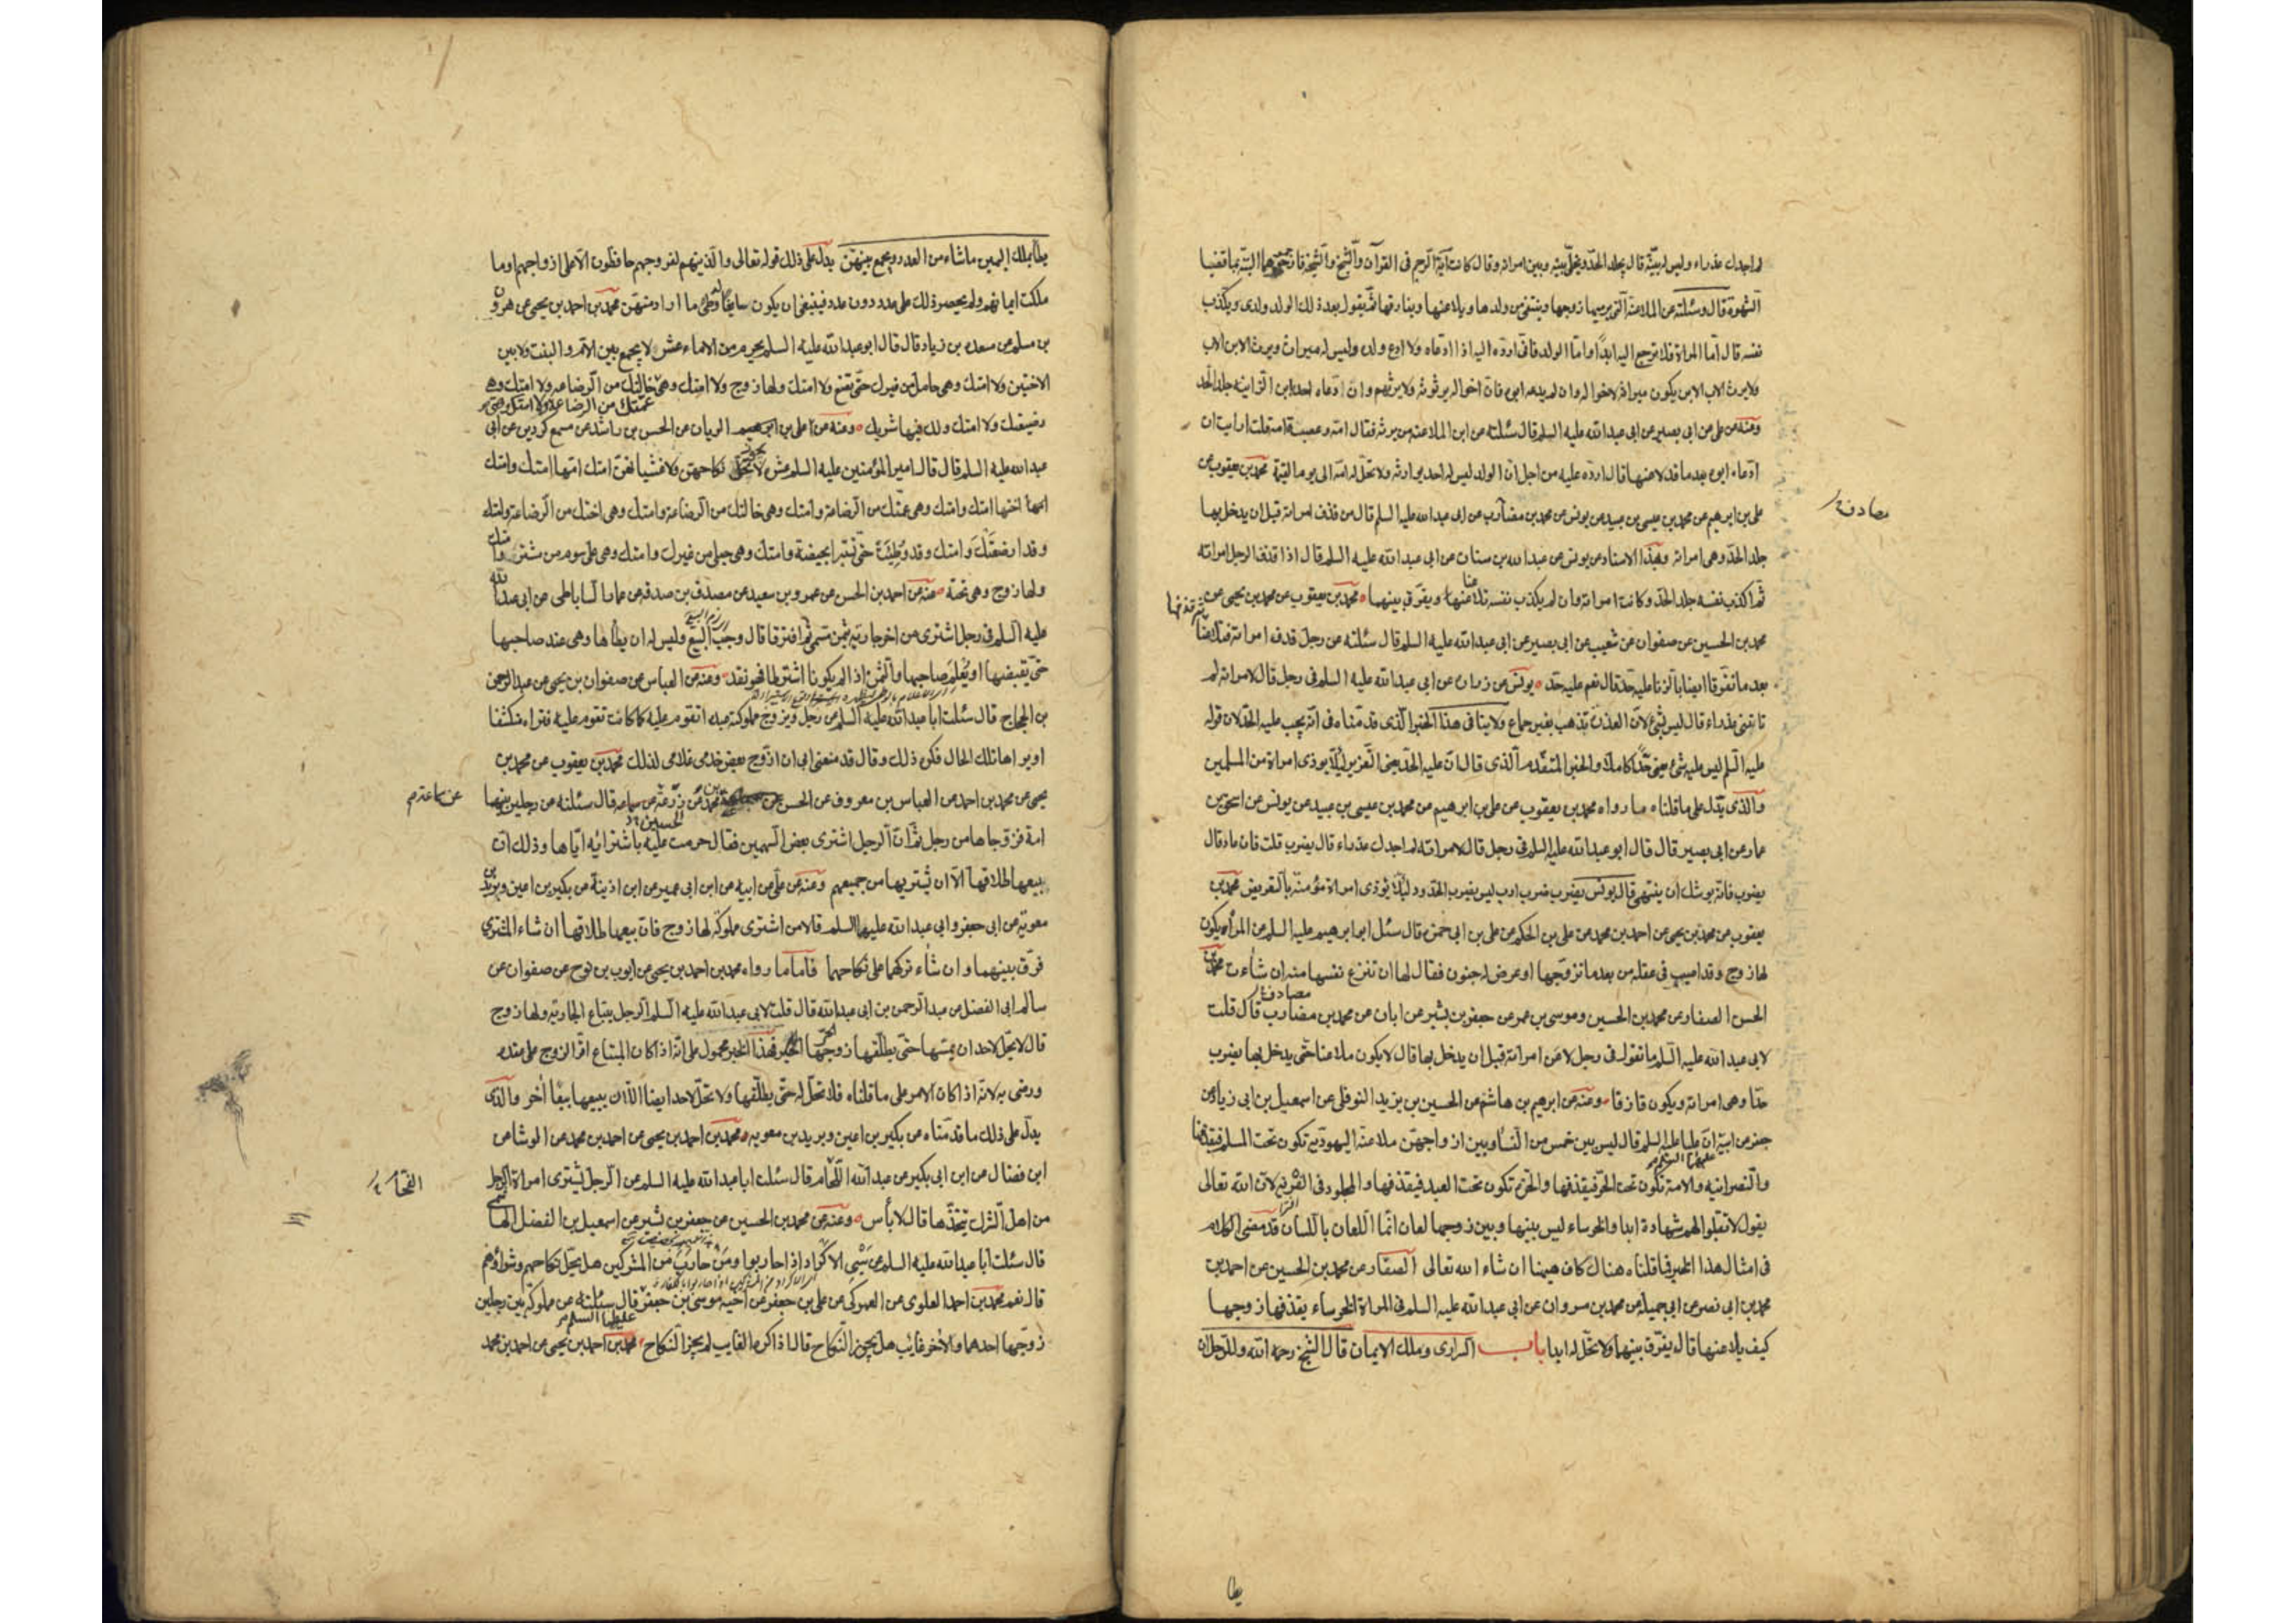 لم اجدك عذراء وليس له بينة قال يجلد الحد ويخلى بينه وبين امراته وقال كانت آية الرجم فى القرآن والشيخ والشيخة فارجموهما البتة بما قضيا
الشهوة قال وسئلته عن الملاعنة التى يرميها زوجها وينتفى من ولدها ويلاعنها ويفارقها ثم يقول بعد ذلك الولد ولدى ويكذب
نفسه قال اما المراة فلا ترجع اليه ابدا واما الولد فانى ارده اليه اذا ادعاه ولا ادع ولده وليس له ميراث ويرث الابن الاب
ولا يرث الاب الابن يكون ميراثه لاخواله وان لم يدعه ابوه فان اخواله يرثونه ولا يرثهم وان دعاه احد ابن الزانية جلد الحد
وعنه عن على عن ابى بصير عن ابى عبد الله عليه السلم قال سئلته عن ابن الملاعنة من يرثه فقال امه وعصبة امه قلت ارايت ان
ادعاه ابوه بعد ما قد لاعنها قال ارده عليه من اجل ان الولد ليس له احد يوارثه ولا تحل له امه الى يوم القيمة محمد بن يعقوب عن
على بن ابرهيم عن محمد بن عيسى بن عبيد عن يونس عن محمد بن مضارب عن ابى عبد الله عليه السلم قال من قذف امراته قبل ان يدخل بها
مصادف
جلد الحد وهى امراته وبهذا الاسناد عن يونس عن عبد الله بن سنان عن ابى عبد الله عليه السلم قال اذا قذف الرجل امراته
ثم اكذب نفسه جلد الحد وكانت امراته وان لم يكذب نفسه تلاعنا ويفرق بينهما محمد بن يعقوب عن محمد بن يحيى عن
محمد بن الحسين عن صفوان عن شعيب عن ابى بصير عن ابى عبد الله عليه السلم قال سئلته عن رجل قذف امراته فتلاعنا ثم قذفها
بعد ما تفرقا ايضا بالزنا عليه حد قال نعم عليه حد يونس عن زرارة عن ابى عبد الله عليه السلم فى رجل قال لامراته لم
تاتنى عذراء قال ليس بشئ لان العذرة تذهب بغير جماع ولا ينافى هذا الخبر الذى قدمناه فى انه يجب عليه الحد لان قوله
عليه السلم ليس عليه شئ يعنى حدا كاملا والخبر المتقدم الذى قال ان عليه الحد يعنى التعزير لئلا يوذى امراة من المسلمين
والذى يدل على ما قلناه ما رواه محمد بن يعقوب عن على بن ابرهيم عن محمد بن عيسى بن عبيد عن يونس عن اسحق بن
عمار عن ابى بصير قال قال ابو عبد الله عليه السلم فى رجل قال لامراته لم اجدك عذراء قال يضرب قلت فان عاد قال
يضرب فانه يوشك ان ينتهى قال يونس يضرب ضرب ادب ليس بضرب الحدود لئلا يوذى امراة مؤمنة بالتعريض محمد بن
يعقوب عن محمد بن يحيى عن احمد بن محمد عن على بن الحكم عن على بن ابى حمزة قال سئل ابو ابرهيم عليه السلم عن المراة يكون
لها زوج وقد اصيب فى عقله من بعد ما تزوجها او عرض له جنون فقال لها ان تنزع نفسها منه ان شاءت محمد بن
الحسن الصفار عن محمد بن الحسين وموسى بن عمر عن جعفر بن بشير عن ابان عن محمد بن مضارب قال قلت
مصادف
لابى عبد الله عليه السلم ما تقول فى رجل لاعن امراته قبل ان يدخل بها قال لا يكون ملاعنا حتى يدخل بها يضرب
حدا وهى امراته ويكون قاذفا وعنه عن ابرهيم بن هاشم عن الحسين بن يزيد النوفلى عن اسمعيل بن ابى زياد عن
جعفر عن ابيه ان عليا عليه السلم قال ليس بين خمس من النساء وبين ازواجهن ملاعنة اليهودية تكون تحت المسلم فيقذفها
عليهما السلم
والنصرانيه والامة تكون تحت الحر فيقذفها والحرة تكون تحت العبد فيقذفها والمجلود فى الفرية لان الله تعالى
يقول لا تقبلوا لهم شهادة ابدا والخرساء ليس بينها وبين زوجها لعان انما اللعان باللسان قد مضى الكلام
فى امثال هذا الخبر فما قلناه هناك كاف هيهنا ان شاء الله تعالى الصفار عن محمد بن الحسين عن احمد بن
محمد بن ابى نصر عن ابى جميلة عن محمد بن مروان عن ابى عبد الله عليه السلم فى المراة الخرساء يقذفها زوجها
كيف يلاعنها قال يفرق بينهما ولا تحل له ابدا باب السرارى وملك الايمان قال الشيخ رحمه الله وللرجل ان
يطا
يطأ بملك اليمين ما شاء من العدد ويجمع بينهن يدل على ذلك قوله تعالى والذين هم لفروجهم حافظون الا على ازواجهم او ما
ملكت ايمانهم ولم يحصر ذلك على عدد دون عدد فينبغى ان يكون سايغا له وطى ما اراد منهن محمد بن احمد بن يحيى عن هرون
بن مسلم عن مسعدة بن زياد قال قال ابو عبد الله عليه السلم يحرم من الاماء عشر لا يجمع بين الام والبنت ولا بين
الاختين ولا امتك وهى حامل من غيرك حتى تضع ولا امتك ولها زوج ولا امتك وهى خالتك من الرضاعه ولا امتك وهى
عمتك من الرضاعة ولا امتك وهى
رضيعتك ولا امتك ولك فيها شريك وعنه عن على بن الريان عن الحسن بن راشد عن مسمع كردين عن ابى
عبد الله عليه السلم قال قال امير المؤمنين عليه السلم عشر لا يحل نكاحهن ولا غشيانهن امتك امها امتك وامتك
اختها امتك وامتك وهى عمتك من الرضاعة وامتك وهى خالتك من الرضاعة وامتك وهى اختك من الرضاعة وامتك
وقد ارضعتك وامتك وقد وطئت حتى تستبرا بحيضة وامتك وهى حبلى من غيرك وامتك وهى على سوم من مشتر وامتك
ولها زوج وهى تحته عنه عن احمد بن الحسن عن عمرو بن سعيد عن مصدق بن صدقه عن عمار الساباطى عن ابى عبد الله
عليه السلم فى رجل اشترى من اخر جارية بثمن مسمى ثم افترقا قال وجب البيع وليس له ان يطأها وهى عند صاحبها
حتى يقبضها او يعلم صاحبها والثمن اذا لم يكونا اشترطا فهو نقد وعنه عن العباس عن صفوان بن يحيى عن عبد الرحمن
بن الحجاج قال سئلت ابا عبد الله عليه السلم عن رجل يزوج مملوكته عبده اتقوم عليه كما كانت تقوم عليه فتراه منكشفا
او يراها تلك الحال فكره ذلك وقال قد منعنى ابى ان ازوج بعض خدمى غلامى لذلك محمد بن يعقوب عن محمد بن
يحيى عن محمد بن احمد عن العباس بن معروف عن الحسن بن محمد عن زرعة عن سماعه قال سئلته عن رجلين بينهما
عن سماعة م
الحسين
امة فزوجاها من رجل ثم ان الرجل اشترى بعض السهمين فقال حرمت عليه باشترائه اياها وذلك ان
بيعها طلاقها الا ان يشتريها من جميعهم وعنه عن على عن ابيه عن ابن ابى عمير عن ابن اذينة عن بكير بن اعين وبريد بن
معوية عن ابى جعفر وابى عبد الله عليهما السلم قالا من اشترى مملوكة لها زوج فان بيعها طلاقها ان شاء المشترى
فرق بينهما وان شاء تركهما على نكاحهما فاما ما رواه محمد بن احمد بن يحيى عن ايوب بن نوح عن صفوان عن
سالم ابى الفضل عن عبد الرحمن بن ابى عبد الله قال قلت لابى عبد الله عليه السلم الرجل يبتاع الجارية ولها زوج
قال لا يحل لاحد ان يمسها حتى يطلقها زوجها الحر فهذا الخبر محمول على انه اذا كان المبتاع اقر الزوج على عقده
ورضى به لانه اذا كان الامر على ما قلناه فلا تحل له حتى يطلقها ولا تحل لاحد ايضا الا ان يبيعها بيعا آخر والذى
يدل على ذلك ما قدمناه عن بكير بن اعين وبريد بن معويه محمد بن احمد بن يحيى عن احمد بن محمد عن الوشا عن
ابن فضال عن ابن ابى بكير عن عبد الله اللحام قال سئلت ابا عبد الله عليه السلم عن الرجل يشترى امراة الرجل
من اهل الشرك يتخذها قال لا بأس وعنه عن محمد بن الحسين عن جعفر بن بشير عن اسمعيل بن الفضل الهاشمى
قال سئلت ابا عبد الله عليه السلم عن سبى الاكراد اذا حاربوا ومن حارب من المشركين هل يحل نكاحهم وشراؤهم
قال نعم محمد بن احمد العلوى عن العمركى عن على بن جعفر عن اخيه موسى بن جعفر قال سئلته عن مملوكة بين رجلين
عليهما السلم
زوجها احدهما والاخر غايب هل يجوز النكاح قال اذا كره الغايب لم يجز النكاح محمد بن احمد بن يحيى عن احمد بن محمد